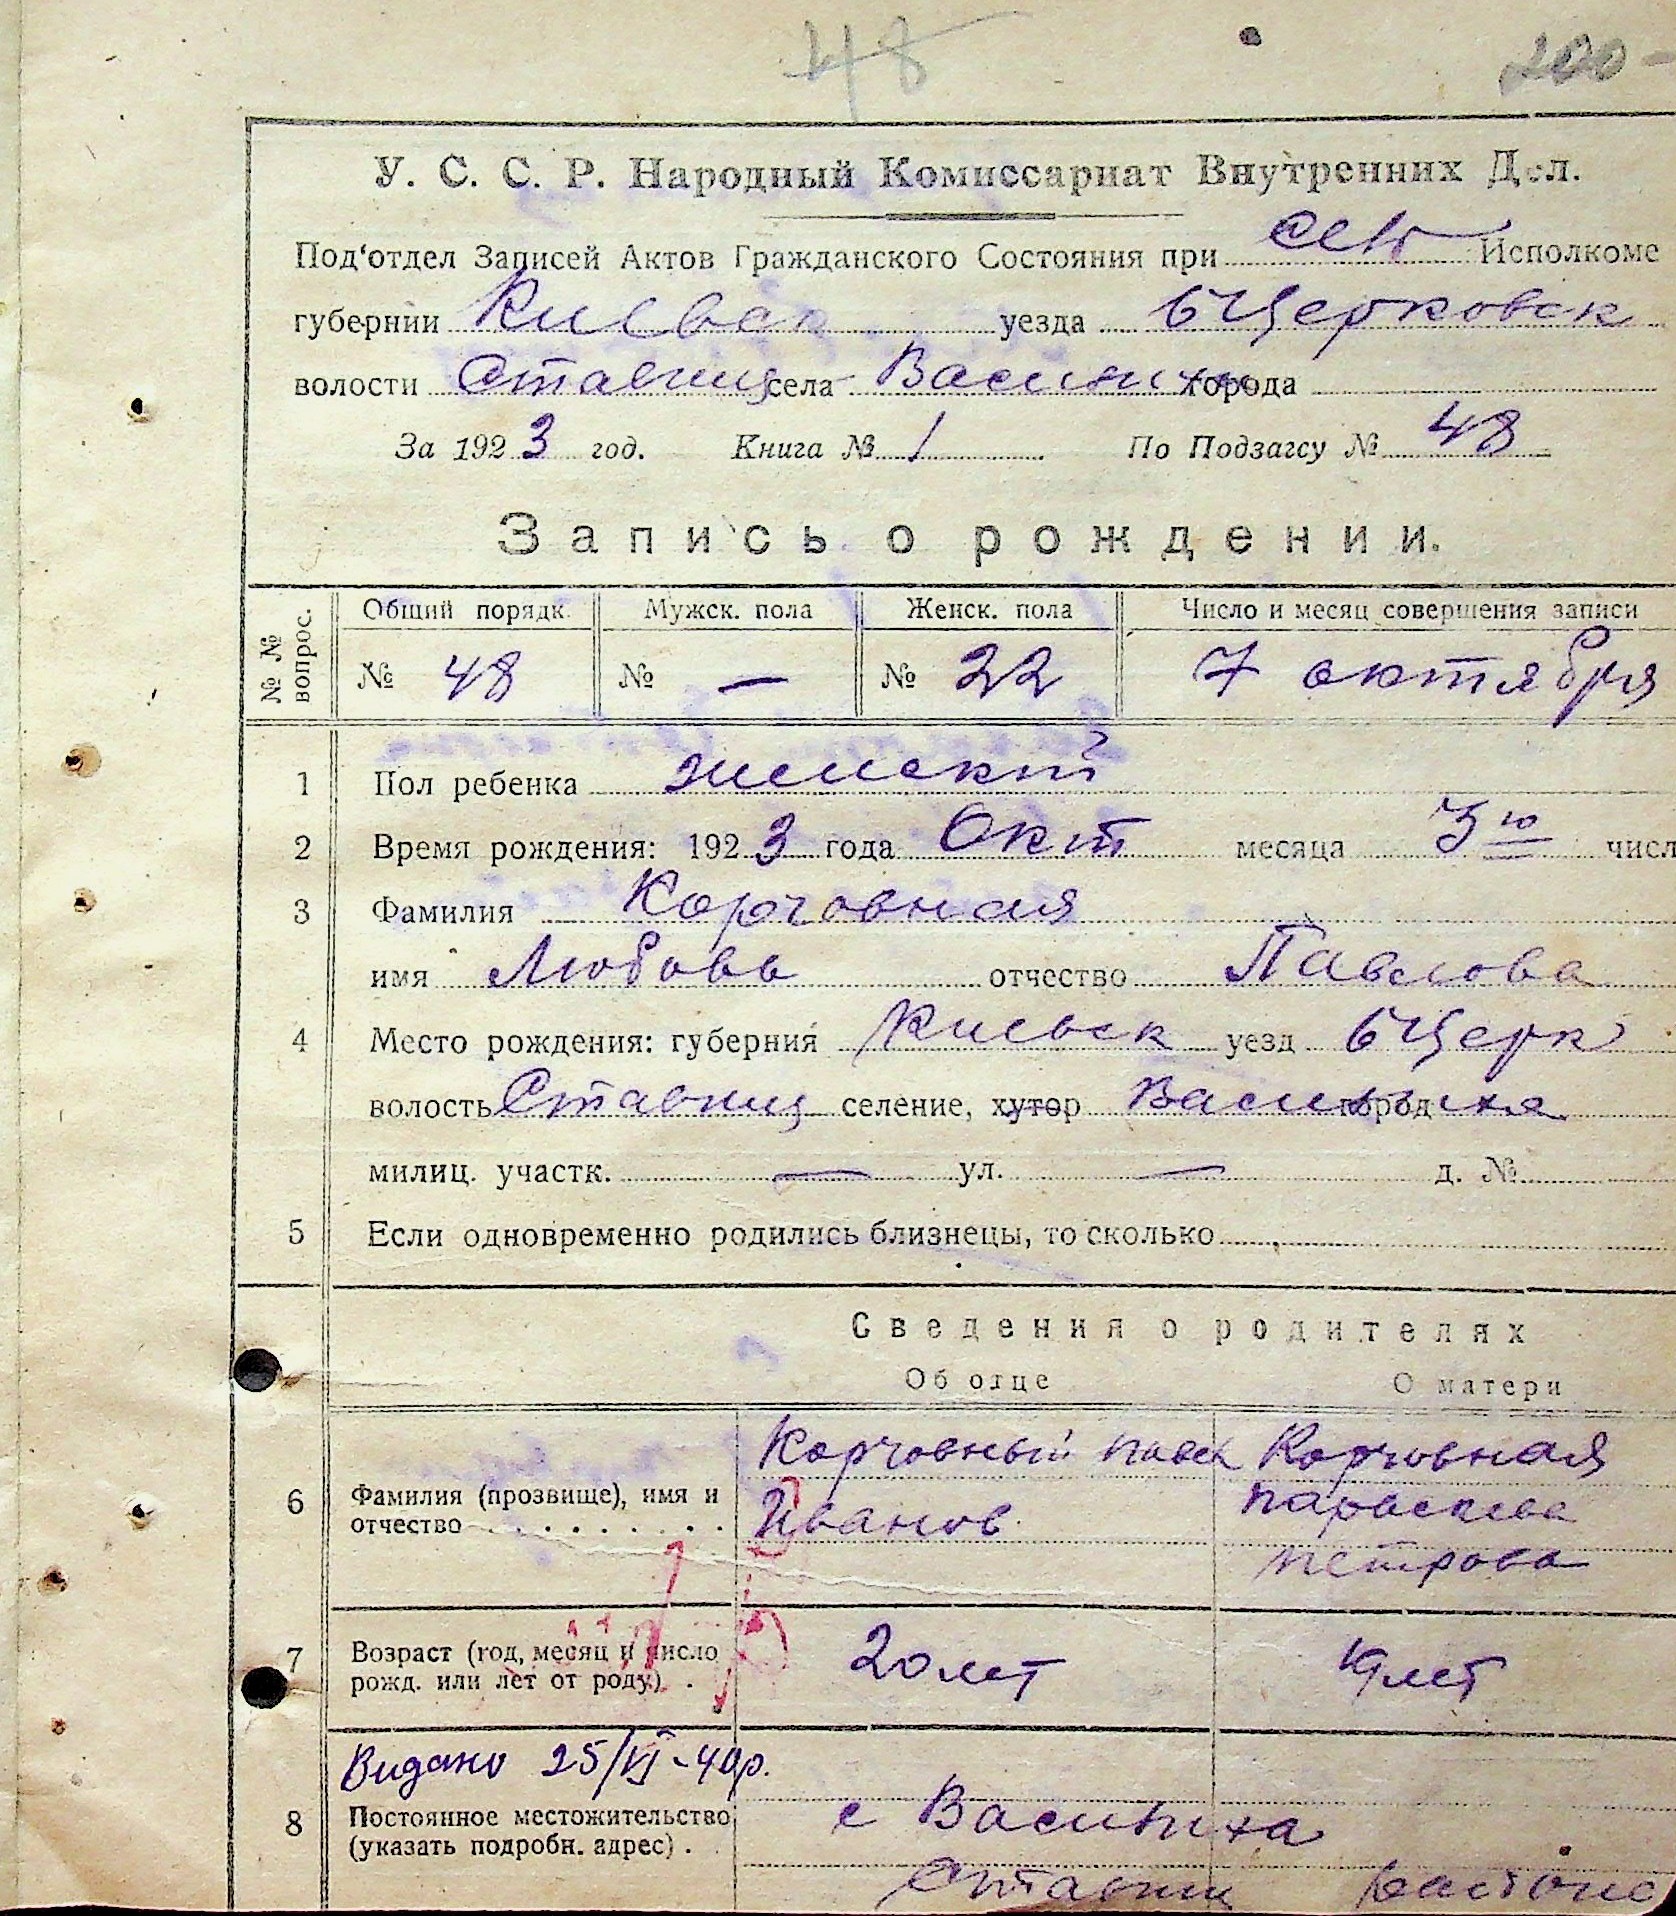 48
200 -
У. С. С. Р. Народный Комиссариат Внутренних Дел.
Под‘отдел Записей Актов Гражданского Состояния при Исполкоме
губернии Киевск уезда бЦерковск
волости Ставищ села Василиха города
За 1923 год. Книга № 1 По Подзагсу № 48
Запись о рождении.
№ № вопрос. Общий порядк. Мужск. пола Женск. пола Число и месяц совершения записи
№ 48 № — № 22 7 октября
1 Пол ребенка женский
2 Время рождения: 1923 года Окт месяца 3го числ
3 Фамилия Корчовная
имя Любовь отчество Павлова
4 Место рождения: губерния Киевск уезд бЦерк
волость Ставищ селение, хутор Василиха город
милиц. участк. — ул. — д. №
5 Если одновременно родились близнецы, то сколько
Сведения о родителях
Об отце О матери
Корчовный Павел Корчовная
6 Фамилия (прозвище), имя и отчество Иванов Параскева
Петрова
7 Возраст (год, месяц и число рожд. или лет от роду) 20 лет 19 лет
Видано 25/VI-40р.
8 Постоянное местожительство (указать подробн. адрес) с Василиха
Ставищ волости